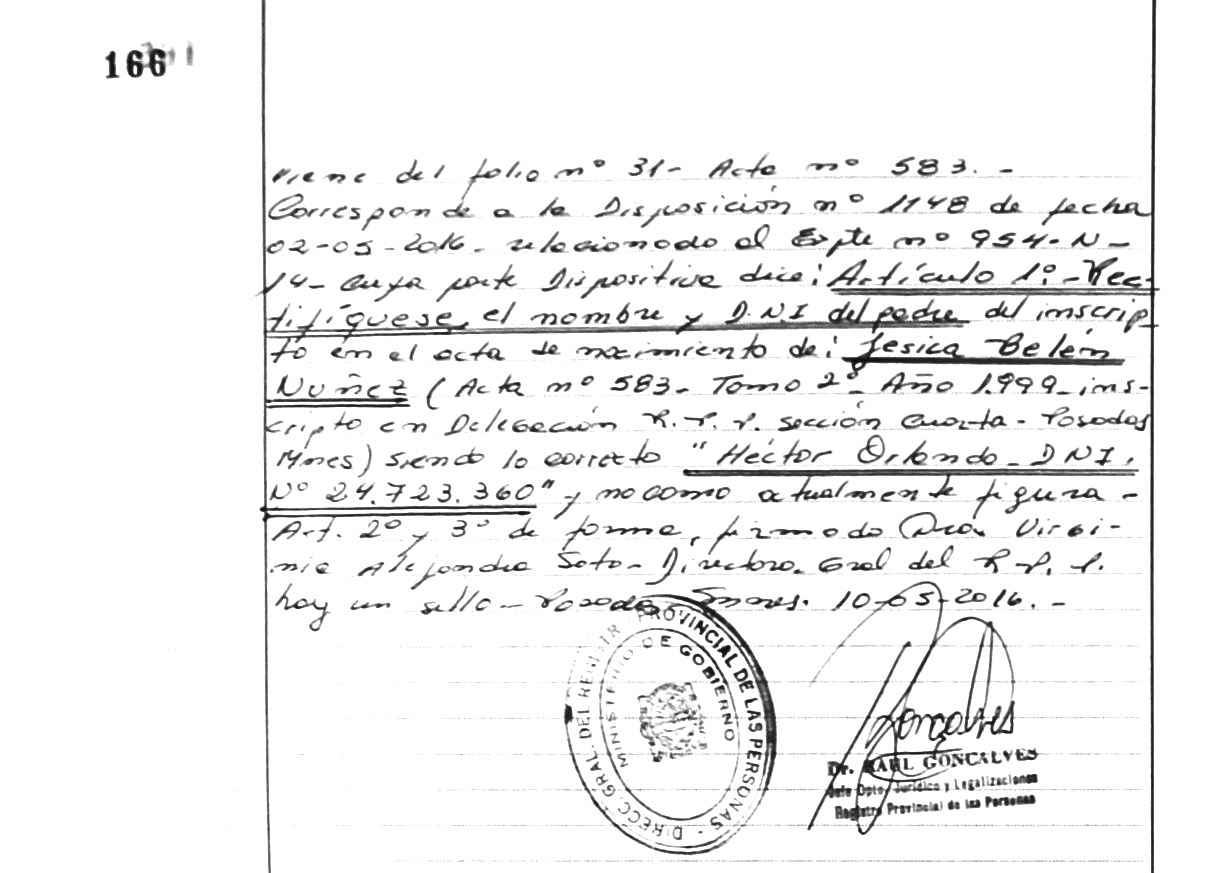 166
Viene del folio nº 31- Acta nº 583. -
Corresponde a la Disposición nº 1148 de fecha
02-05-2016- relacionado al Expte nº 954-N-
14- cuya parte Dispositiva dice: Artículo 1º.- Rec-
tifíquese, el nombre y D.N.I del padre del inscrip-
to en el acta de nacimiento de: Jesica Belén
Nuñez (Acta nº 583- Tomo 2º- Año 1.999- ins-
cripto en Delegación R.P.P. sección Cuarta- Posadas
Mnes) siendo lo correcto "Héctor Orlando- DNI.
Nº 24.723.360" y no como atualmente figura -
Art. 2º y 3º de forma, firmado Dra. Virgi-
nia Alejandra Soto- Directora. Gral del R.P.P.
hay un sello- Posadas, Mnes. 10-05-2016. -
DIRECC. GRAL. DEL REGISTRO PROVINCIAL DE LAS PERSONAS -
MINISTERIO DE GOBIERNO
Goncalves
Dr. RAUL GONCALVES
Jefe Dpto. Jurídico y Legalizaciones
Registro Provincial de las Personas